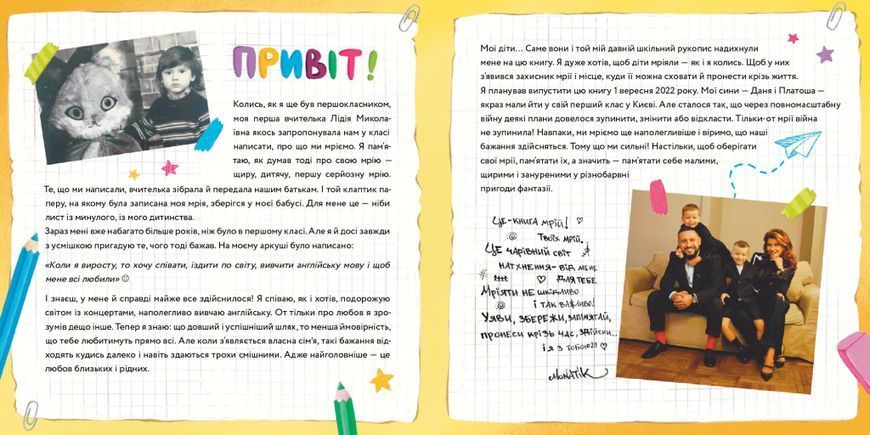 ПРИВІТ!
Колись, як я ще був першокласником,
моя перша вчителька Лідія Микола-
ївна якось запропонувала нам у класі
написати, про що ми мріємо. Я пам'я-
таю, як думав тоді про свою мрію —
щиру, дитячу, першу серйозну мрію.
Те, що ми написали, вчителька зібрала й передала нашим батькам. І той клаптик па-
перу, на якому була записана моя мрія, зберігся у моєї бабусі. Для мене це — ніби
лист із минулого, із мого дитинства.
Зараз мені вже набагато більше років, ніж було в першому класі. Але я й досі завжди
з усмішкою пригадую те, чого тоді бажав. На моєму аркуші було написано:
«Коли я виросту, то хочу співати, їздити по світу, вивчити англійську мову і щоб
мене всі любили» ☺
І знаєш, у мене й справді майже все здійснилося! Я співаю, як і хотів, подорожую
світом із концертами, наполегливо вивчаю англійську. От тільки про любов я зро-
зумів дещо інше. Тепер я знаю: що довший і успішніший шлях, то менша ймовірність,
що тебе любитимуть прямо всі. Але коли з'являється власна сім'я, такі бажання від-
ходять кудись далеко і навіть здаються трохи смішними. Адже найголовніше — це
любов близьких і рідних.
Мої діти... Саме вони і той мій давній шкільний рукопис надихнули
мене на цю книгу. Я дуже хотів, щоб діти мріяли — як і я колись. Щоб у них
з'явився захисник мрії і місце, куди її можна сховати й пронести крізь життя.
Я планував випустити цю книгу 1 вересня 2022 року. Мої сини — Даня і Платоша —
якраз мали йти у свій перший клас у Києві. Але сталося так, що через повномасштабну
війну деякі плани довелося зупинити, змінити або відкласти. Тільки-от мрії війна
не зупинила! Навпаки, ми мріємо ще наполегливіше і віримо, що наші
бажання здійсняться. Тому що ми сильні! Настільки, щоб оберігати
свої мрії, пам'ятати їх, а значить — пам'ятати себе малими,
щирими і зануреними у різнобарвні
пригоди фантазії.
ЦЕ-КНИГА МРІЙ!
ТВОЇХ МРІЙ.
ЦЕ ЧАРІВНИЙ СВІТ
НАТХНЕННЯ-ВІД МЕНЕ
ДЛЯ ТЕБЕ.
МРІЯТИ НЕ ШКІДЛИВО
І ТАК ВАЖЛИВО!
УЯВИ, ЗБЕРЕЖИ, ЗАПАМ'ЯТАЙ,
ПРОНЕСИ КРІЗЬ ЧАС, ЗДІЙСНИ...
І Я З ТОБОЮ!!!
MONATIK